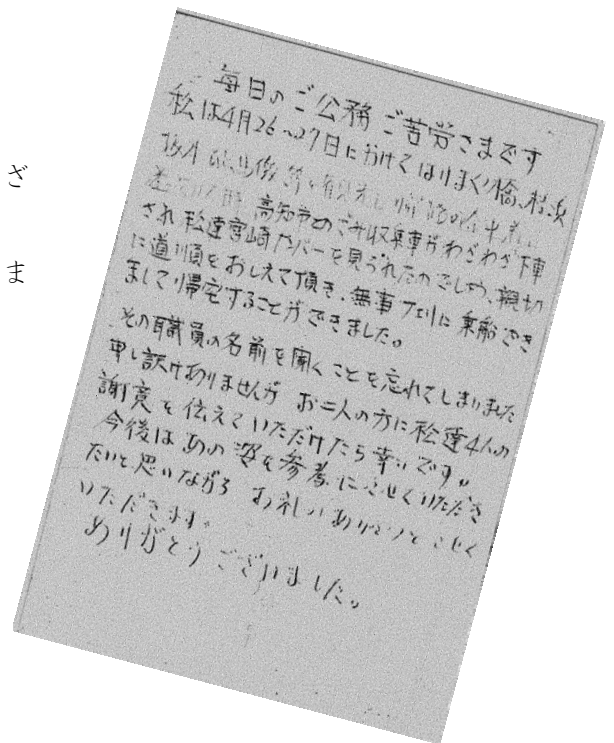 毎日のご公務ご苦労さまです
私は4月26〜27日にかけてはりまや橋、桂浜
坂本 銅像等を観光し
高知市のごみ収集車がわざわざ下車
され私達宮崎ナンバーを見られたのでしょう、親切
に道順をおしえて頂き、無事フェリーに乗船でき
まして帰宅することができました。
その職員の名前を聞くことを忘れてしまいました
申し訳けありませんが お二人の方に私達4人の
謝意を伝えていただけたら幸いです。
今後はあの姿を参考にさせていただき
たいと思いながら お礼 させて
いただきます。
ありがとうございました。
ざ
ま